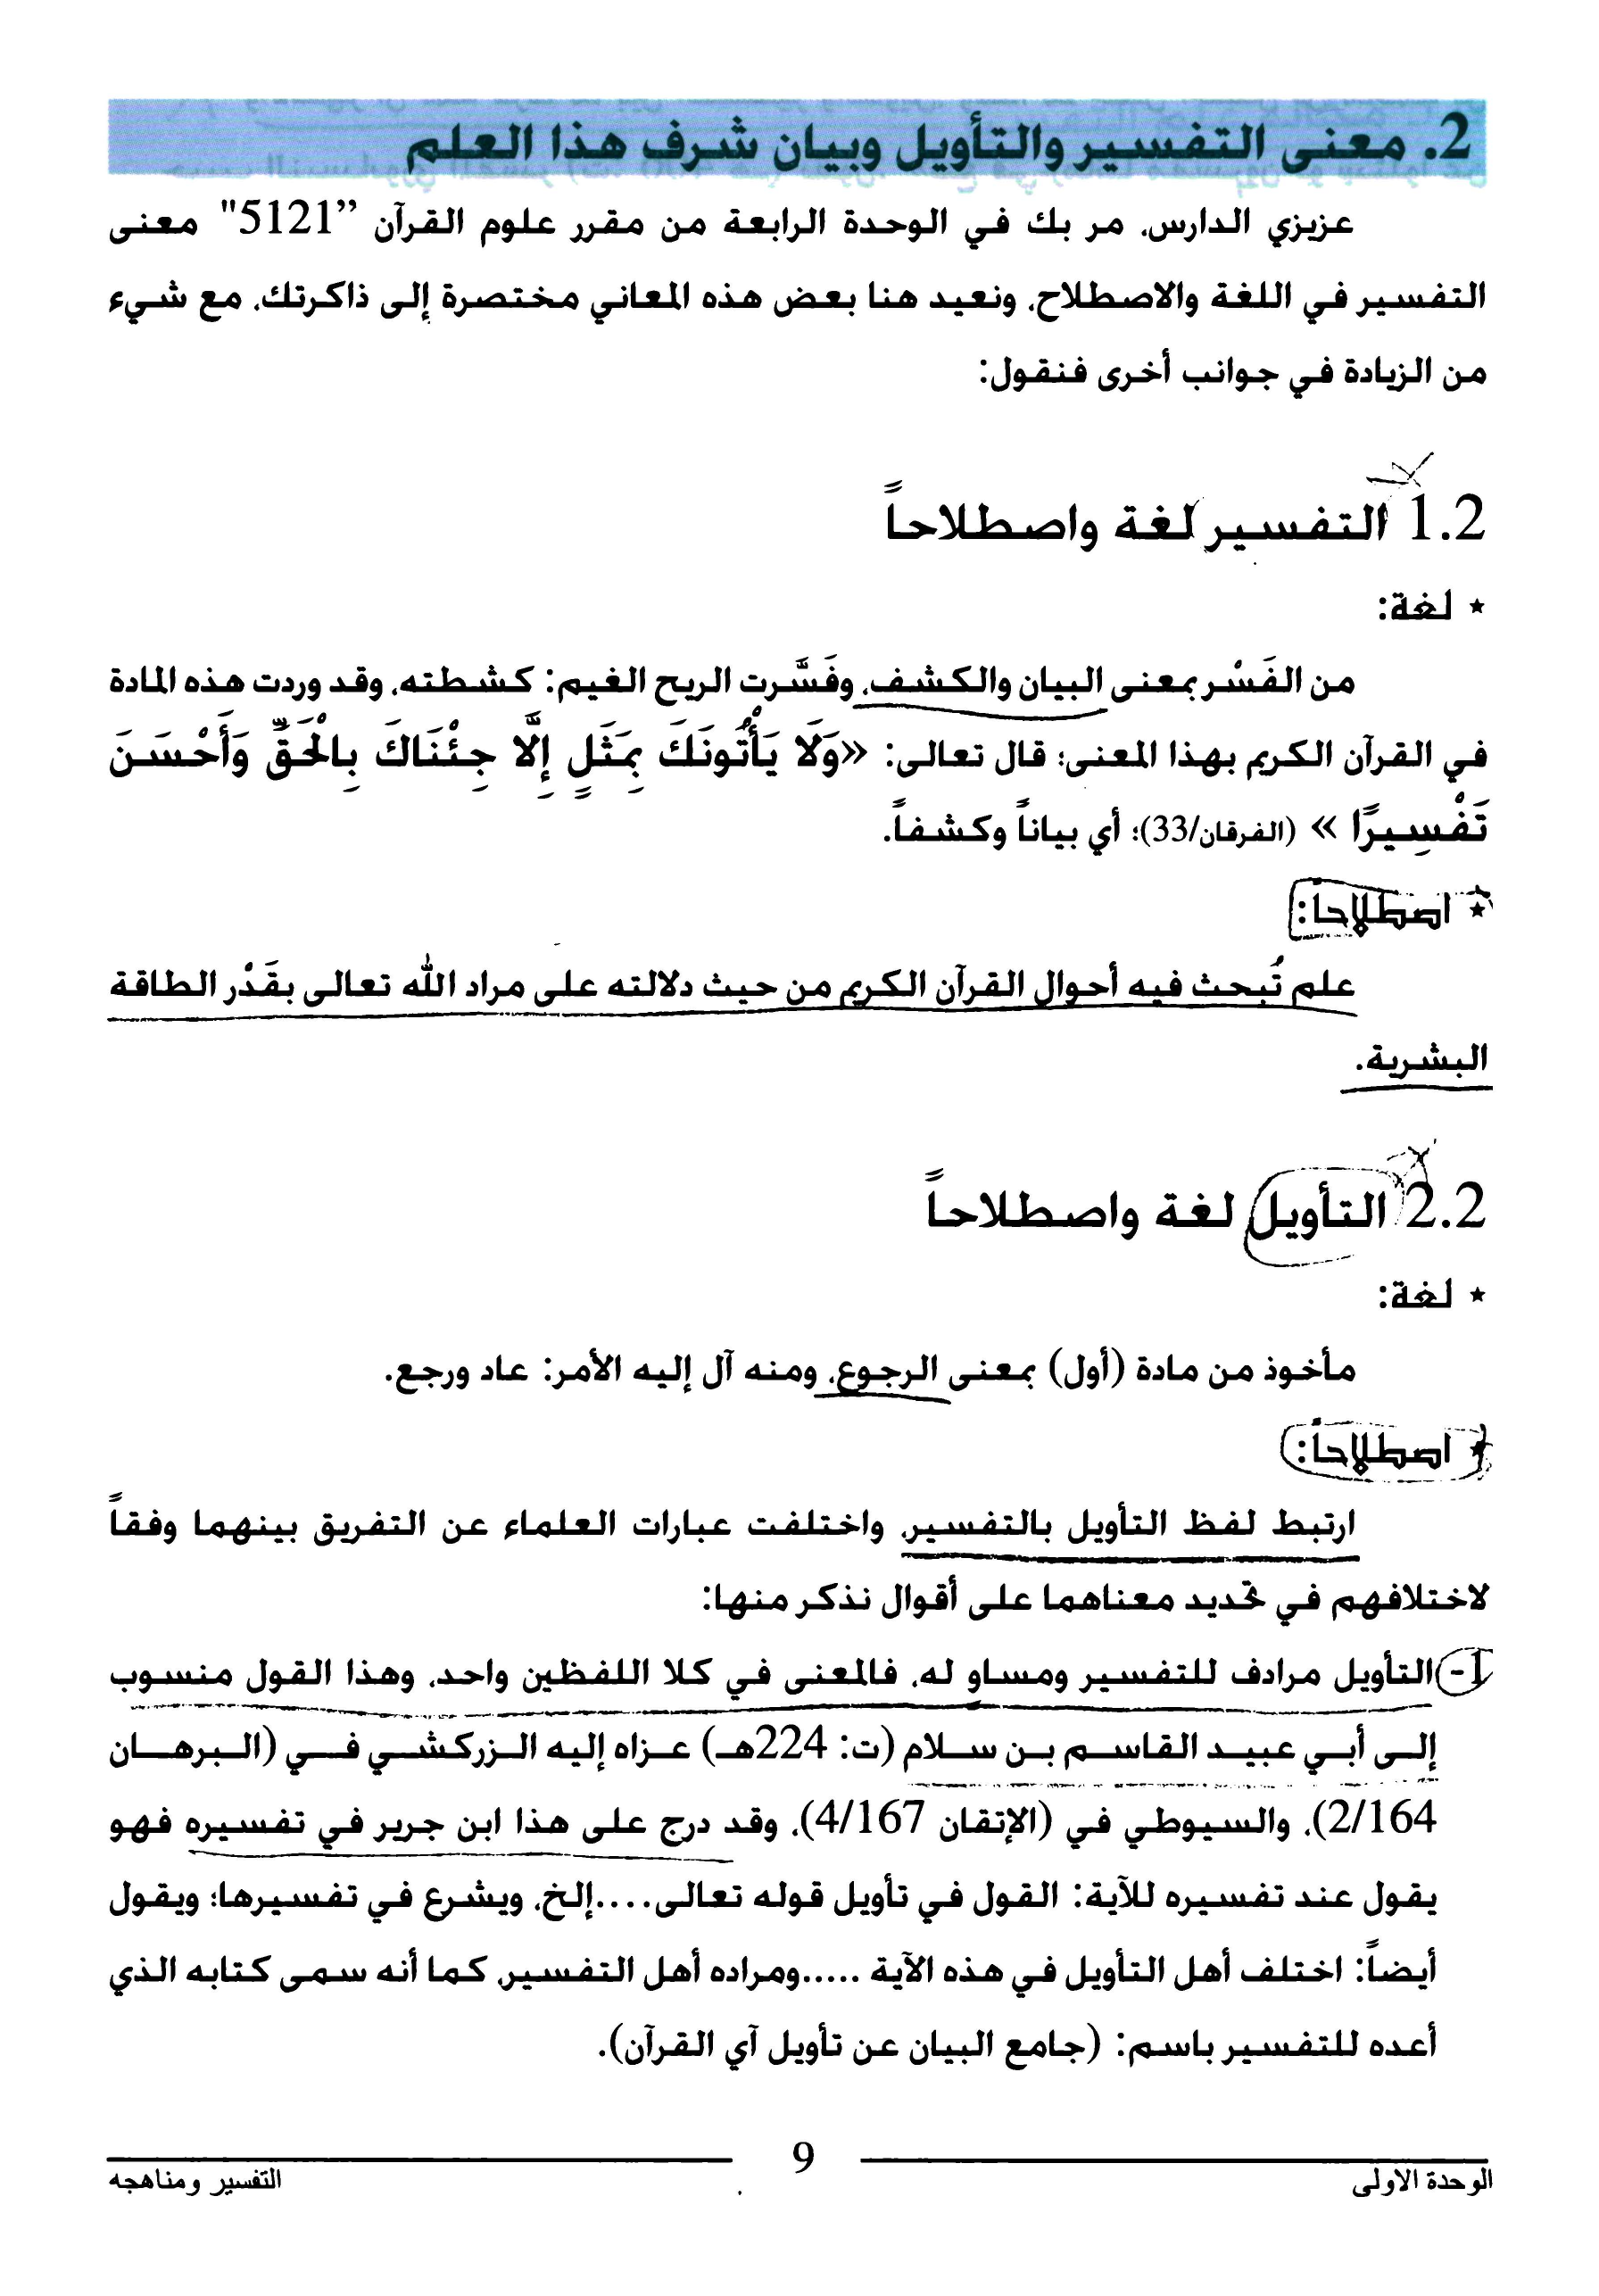 2. معنى التفسير والتأويل وبيان شرف هذا العلم
عزيزي الدارس، مر بك في الوحدة الرابعة من مقرر علوم القرآن ”5121" معنى
التفسير في اللغة والاصطلاح، ونعيد هنا بعض هذه المعاني مختصرة إلى ذاكرتك، مع شيء
من الزيادة في جوانب أخرى فنقول:
1.2 التفسير لغة واصطلاحاً
* لغة:
من الفَسْر بمعنى البيان والكشف، وفَسَّرت الريح الغيم: كشطته، وقد وردت هذه المادة
في القرآن الكريم بهذا المعنى؛ قال تعالى: «وَلَا يَأْتُونَكَ بِمَثَلٍ إِلَّا جِئْنَاكَ بِالْحَقِّ وَأَحْسَنَ
تَفْسِيرًا » (الفرقان/33)؛ أي بياناً وكشفاً.
* اصطلاحاً:
علم تُبحث فيه أحوال القرآن الكريم من حيث دلالته على مراد الله تعالى بقَدْر الطاقة
البشرية.
2.2 التأويل لغة واصطلاحاً
* لغة:
مأخوذ من مادة (أول) بمعنى الرجوع، ومنه آل إليه الأمر: عاد ورجع.
* اصطلاحاً:
ارتبط لفظ التأويل بالتفسير، واختلفت عبارات العلماء عن التفريق بينهما وفقاً
لاختلافهم في تحديد معناهما على أقوال نذكر منها:
1- التأويل مرادف للتفسير ومساو له، فالمعنى في كلا اللفظين واحد، وهذا القول منسوب
إلى أبي عبيد القاسم بن سلام (ت: 224هـ) عزاه إليه الزركشي في (البرهان
2/164)، والسيوطي في (الإتقان 4/167)، وقد درج على هذا ابن جرير في تفسيره فهو
يقول عند تفسيره للآية: القول في تأويل قوله تعالى....إلخ، ويشرع في تفسيرها؛ ويقول
أيضاً: اختلف أهل التأويل في هذه الآية .....ومراده أهل التفسير، كما أنه سمى كتابه الذي
أعده للتفسير باسم: (جامع البيان عن تأويل آي القرآن).
9
الوحدة الاولى
التفسير ومناهجه